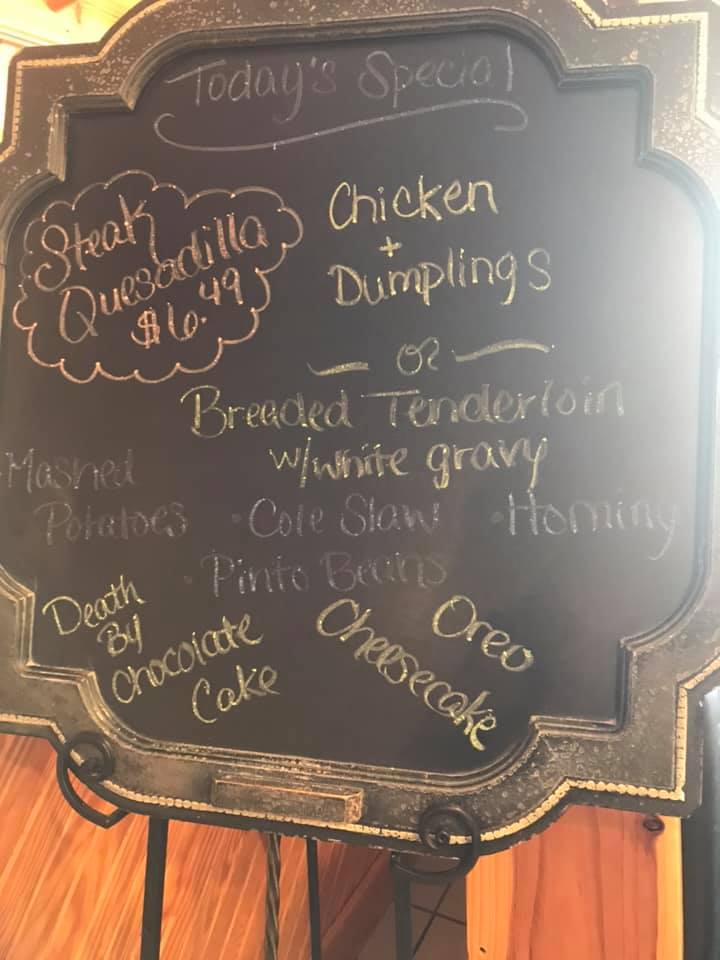 Today's Special
Steak
Quesadilla
$6.49
Chicken
+
Dumplings
or
Breaded Tenderloin
w/white gravy
·Mashed
Potatoes
·Cole Slaw
·Hominy
·Pinto Beans
Death
By
Chocolate
Cake
Oreo
Cheesecake